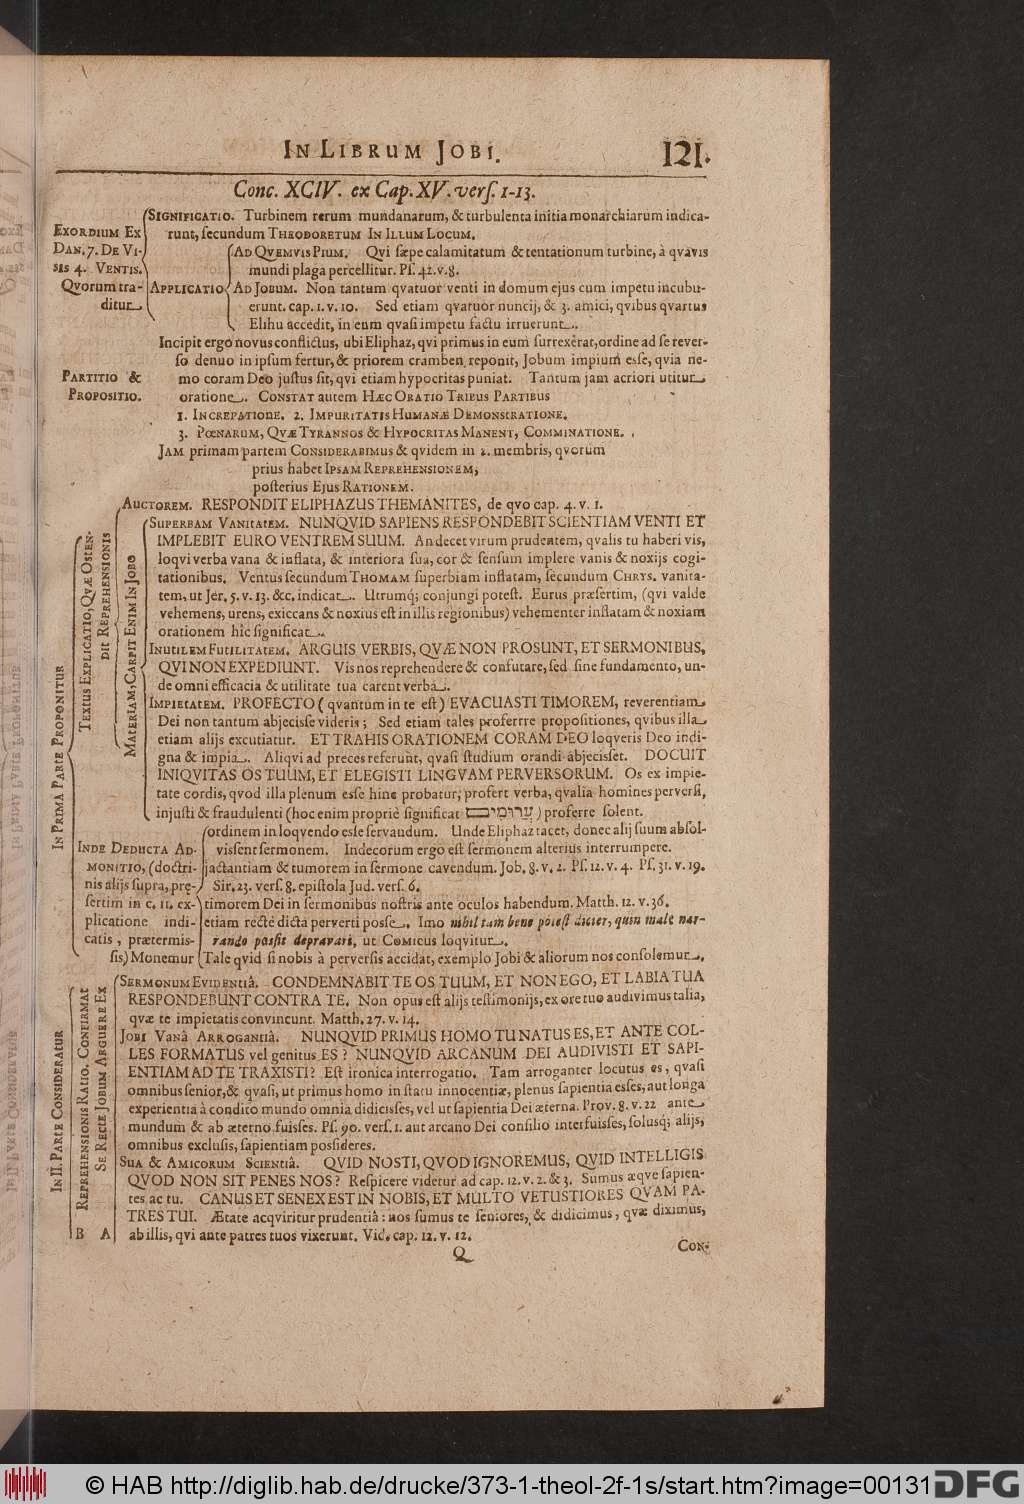 IN LIBRUM JOBI. 121.
Conc. XCIV. ex Cap. XV. verſ. 1-13.
EXORDIUM EX
DAN. 7. DE VI-
SIS 4. VENTIS.
Qvorum tra-
ditur
SIGNIFICATIO. Turbinem rerum mundanarum, & turbulenta initia monarchiarum indica-
runt, ſecundum THEODORETUM IN ILLUM LOCUM.
APPLICATIO
AD QVEMVIS PIUM. Qvi ſæpe calamitatum & tentationum turbine, à qvavis
mundi plaga percellitur. Pſ. 42. v. 8.
AD JOBUM. Non tantum qvatuor venti in domum ejus cum impetu incubu-
erunt. cap. 1. v. 10. Sed etiam qvatuor nuncij, & 3. amici, qvibus qvartus
Elihu accedit, in eum qvaſi impetu factu irruerunt.
PARTITIO &
PROPOSITIO.
Incipit ergo novus conflictus, ubi Eliphaz, qvi primus in eum ſurrexerat, ordine ad ſe rever-
ſo denuo in ipſum fertur, & priorem cramben reponit, Jobum impium eſſe, qvia ne-
mo coram Deo juſtus ſit, qvi etiam hypocritas puniat. Tantum jam acriori utitur
oratione. CONSTAT autem HÆC ORATIO TRIBUS PARTIBUS
1. INCREPATIONE. 2. IMPURITATIS HUMANÆ DEMONSTRATIONE.
3. POENARUM, QVÆ TYRANNOS & HYPOCRITAS MANENT, COMMINATIONE.
JAM primam partem CONSIDERABIMUS & qvidem in 2. membris, qvorum
prius habet IPSAM REPREHENSIONEM,
poſterius EJUS RATIONEM.
IN PRIMA PARTE PROPONITUR
TEXTUS EXPLICATIO, QVÆ OSTEN-
DIT REPREHENSIONIS
AUCTOREM. RESPONDIT ELIPHAZUS THEMANITES, de qvo cap. 4. v. 1.
MATERIAM, CARPIT ENIM IN JOBO
SUPERBAM VANITATEM. NUNQVID SAPIENS RESPONDEBIT SCIENTIAM VENTI ET
IMPLEBIT EURO VENTREM SUUM. An decet virum prudentem, qvalis tu haberi vis,
loqvi verba vana & inflata, & interiora ſua, cor & ſenſum implere vanis & noxijs cogi-
tationibus. Ventus ſecundum THOMAM ſuperbiam inflatam, ſecundum CHRYS. vanita-
tem, ut Jer. 5. v. 13. &c. indicat. Utrumq; conjungi poteſt. Eurus præſertim, (qvi valde
vehemens, urens, exiccans & noxius eſt in illis regionibus) vehementer inflatam & noxiam
orationem hîc ſignificat.
INUTILEM FUTILITATEM. ARGUIS VERBIS, QVÆ NON PROSUNT, ET SERMONIBUS,
QVI NON EXPEDIUNT. Vis nos reprehendere & confutare, ſed ſine fundamento, un-
de omni efficacia & utilitate tua carent verba.
IMPIETATEM. PROFECTO ( qvantum in te eſt ) EVACUASTI TIMOREM, reverentiam
Dei non tantum abjeciſſe videris ; Sed etiam tales proferre propoſitiones, qvibus illa
etiam alijs excutiatur. ET TRAHIS ORATIONEM CORAM DEO loqveris Deo indi-
gna & impia. Aliqvi ad preces referunt, qvaſi ſtudium orandi abjeciſſet. DOCUIT
INIQVITAS OS TUUM, ET ELEGISTI LINGVAM PERVERSORUM. Os ex impie-
tate cordis, qvod illa plenum eſſe hinc probatur, profert verba, qvalia homines perverſi,
injuſti & fraudulenti (hoc enim propriè ſignificat ערומים ) proferre ſolent.
INDE DEDUCTA AD-
MONITIO, (doctri-
nis alijs ſupra, præ-
ſertim in c. 11. ex-
plicatione indi-
catis, prætermis-
ſis) Monemur
ordinem in loqvendo eſſe ſervandum. Unde Eliphaz tacet, donec alij ſuum abſol-
viſſent ſermonem. Indecorum ergo eſt ſermonem alterius interrumpere.
jactantiam & tumorem in ſermone cavendum. Job. 8. v. 2. Pſ. 12. v. 4. Pſ. 31. v. 19.
Sir. 23. verſ. 8. epiſtola Jud. verſ. 6.
timorem Dei in ſermonibus noſtris ante oculos habendum. Matth. 12. v. 36.
etiam rectè dicta perverti poſſe. Imo nihil tam bene poteſt dicier, quin male nar-
rando poſſit depravari, ut COMICUS loqvitur.
Tale qvid ſi nobis à perverſis accidat, exemplo Jobi & aliorum nos conſolemur.
IN II. PARTE CONSIDERATUR
REPREHENSIONIS RATIO. CONFIRMAT
SE RECTE JOBUM ARGUERE EX
SERMONUM EVIDENTIÂ. CONDEMNABIT TE OS TUUM, ET NON EGO, ET LABIA TUA
RESPONDEBUNT CONTRA TE. Non opus eſt alijs teſtimonijs, ex ore tuo audivimus talia,
qvæ te impietatis convincunt. Matth. 27. v. 14.
JOBI VANÂ ARROGANTIÂ. NUNQVID PRIMUS HOMO TU NATUS ES, ET ANTE COL-
LES FORMATUS vel genitus ES ? NUNQVID ARCANUM DEI AUDIVISTI ET SAPI-
ENTIAM AD TE TRAXISTI? Eſt ironica interrogatio. Tam arroganter locutus es, qvaſi
omnibus ſenior, & qvaſi, ut primus homo in ſtatu innocentiæ, plenus ſapientia eſſes, aut longa
experientia à condito mundo omnia didiciſſes, vel ut ſapientia Dei æterna. Prov. 8. v. 22 ante
mundum & ab æterno fuiſſes. Pſ. 90. verſ. 1. aut arcano Dei conſilio interfuiſſes, ſolusq; alijs,
omnibus excluſis, ſapientiam poſſideres.
SUA & AMICORUM SCIENTIÂ. QVID NOSTI, QVOD IGNOREMUS, QVID INTELLIGIS
QVOD NON SIT PENES NOS? Reſpicere videtur ad cap. 12. v. 2. & 3. Sumus æqve ſapien-
tes ac tu. CANUS ET SENEX EST IN NOBIS, ET MULTO VETUSTIORES QVAM PA-
TRES TUI. Ætate acqviritur prudentiâ : nos ſumus te ſeniores, & didicimus, qvæ diximus,
B A ab illis, qvi ante patres tuos vixerunt. Vid. cap. 12. v. 12.
Q CON-
© HAB http://diglib.hab.de/drucke/373-1-theol-2f-1s/start.htm?image=00131 DFG